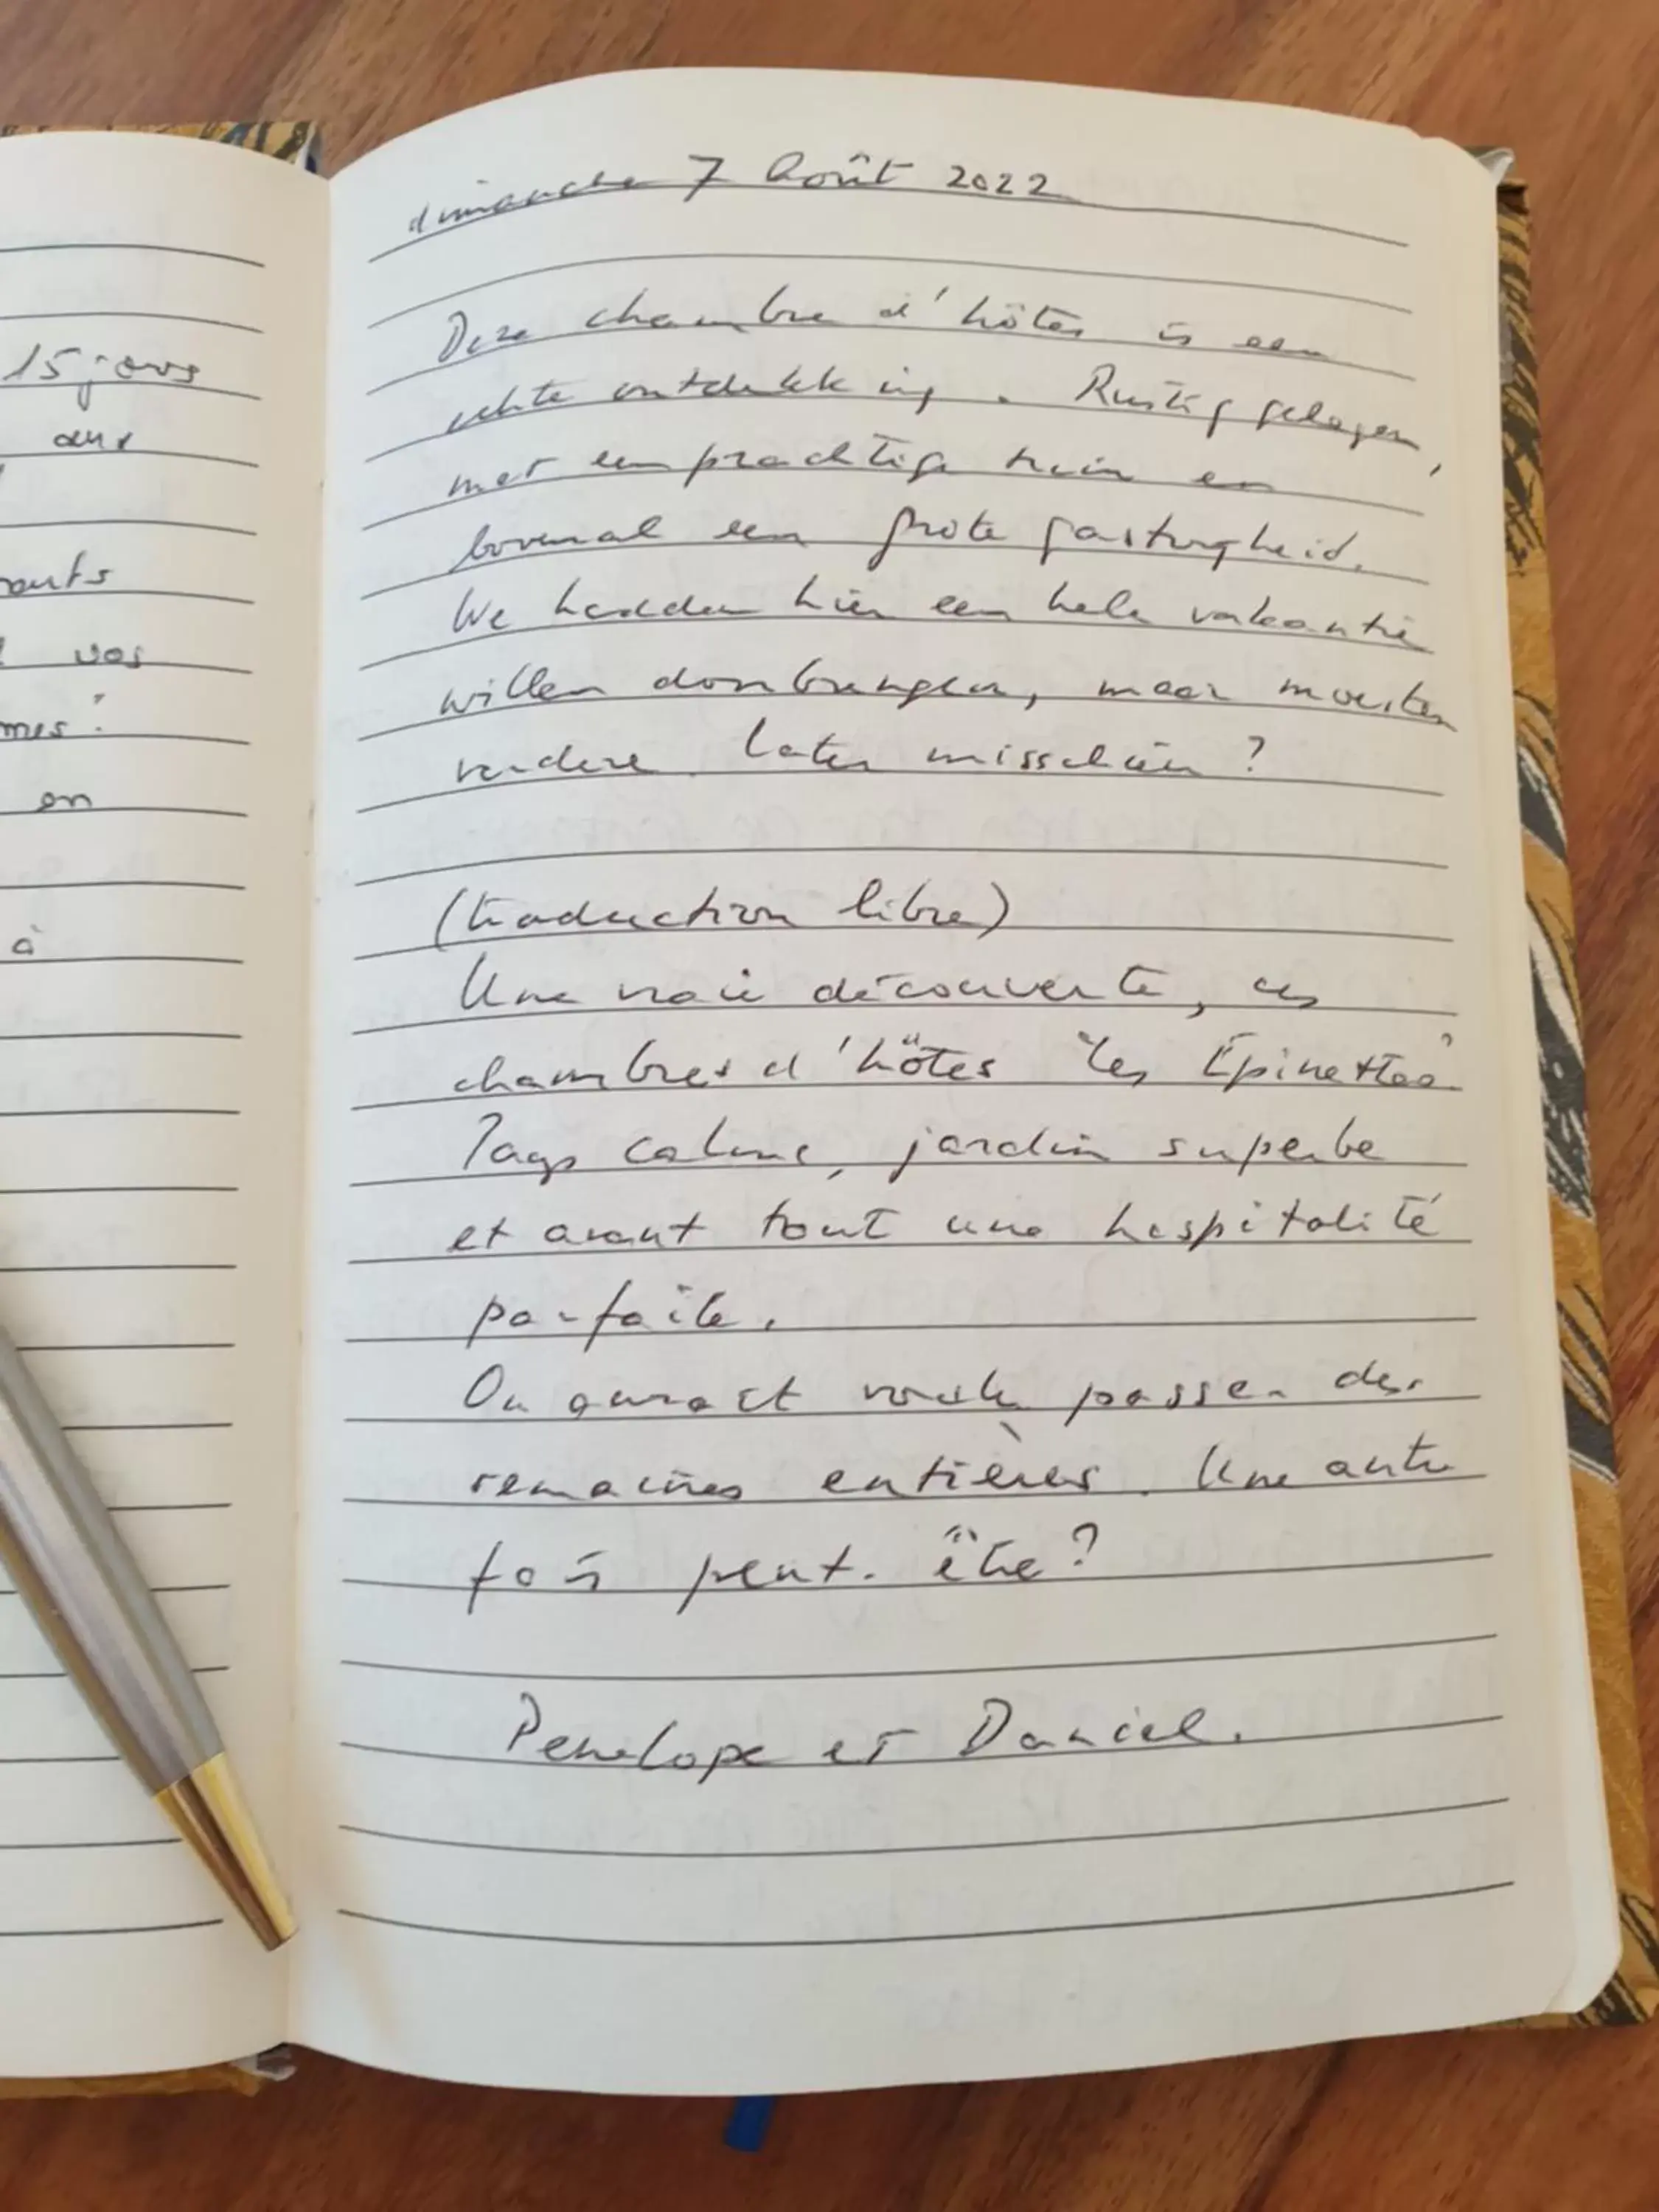 15 jours
aux
vos
en
à
dimanche 7 Août 2022
Deze chambre d'hôtes is een
echte ontdekking. Rustig gelegen,
met een prachtige tuin en
bovenal een grote gastvrijheid.
We hadden hier een hele vakantie
willen doorbrengen, maar moesten
verder. Later misschien ?
(traduction libre)
Une vraie découverte, ces
chambres d'hôtes "les Épinettes"
Pays calme, jardin superbe
et avant tout une hospitalité
parfaite.
On aurait voulu passer des
semaines entières. Une autre
fois peut-être ?
Penelope et Daniel.